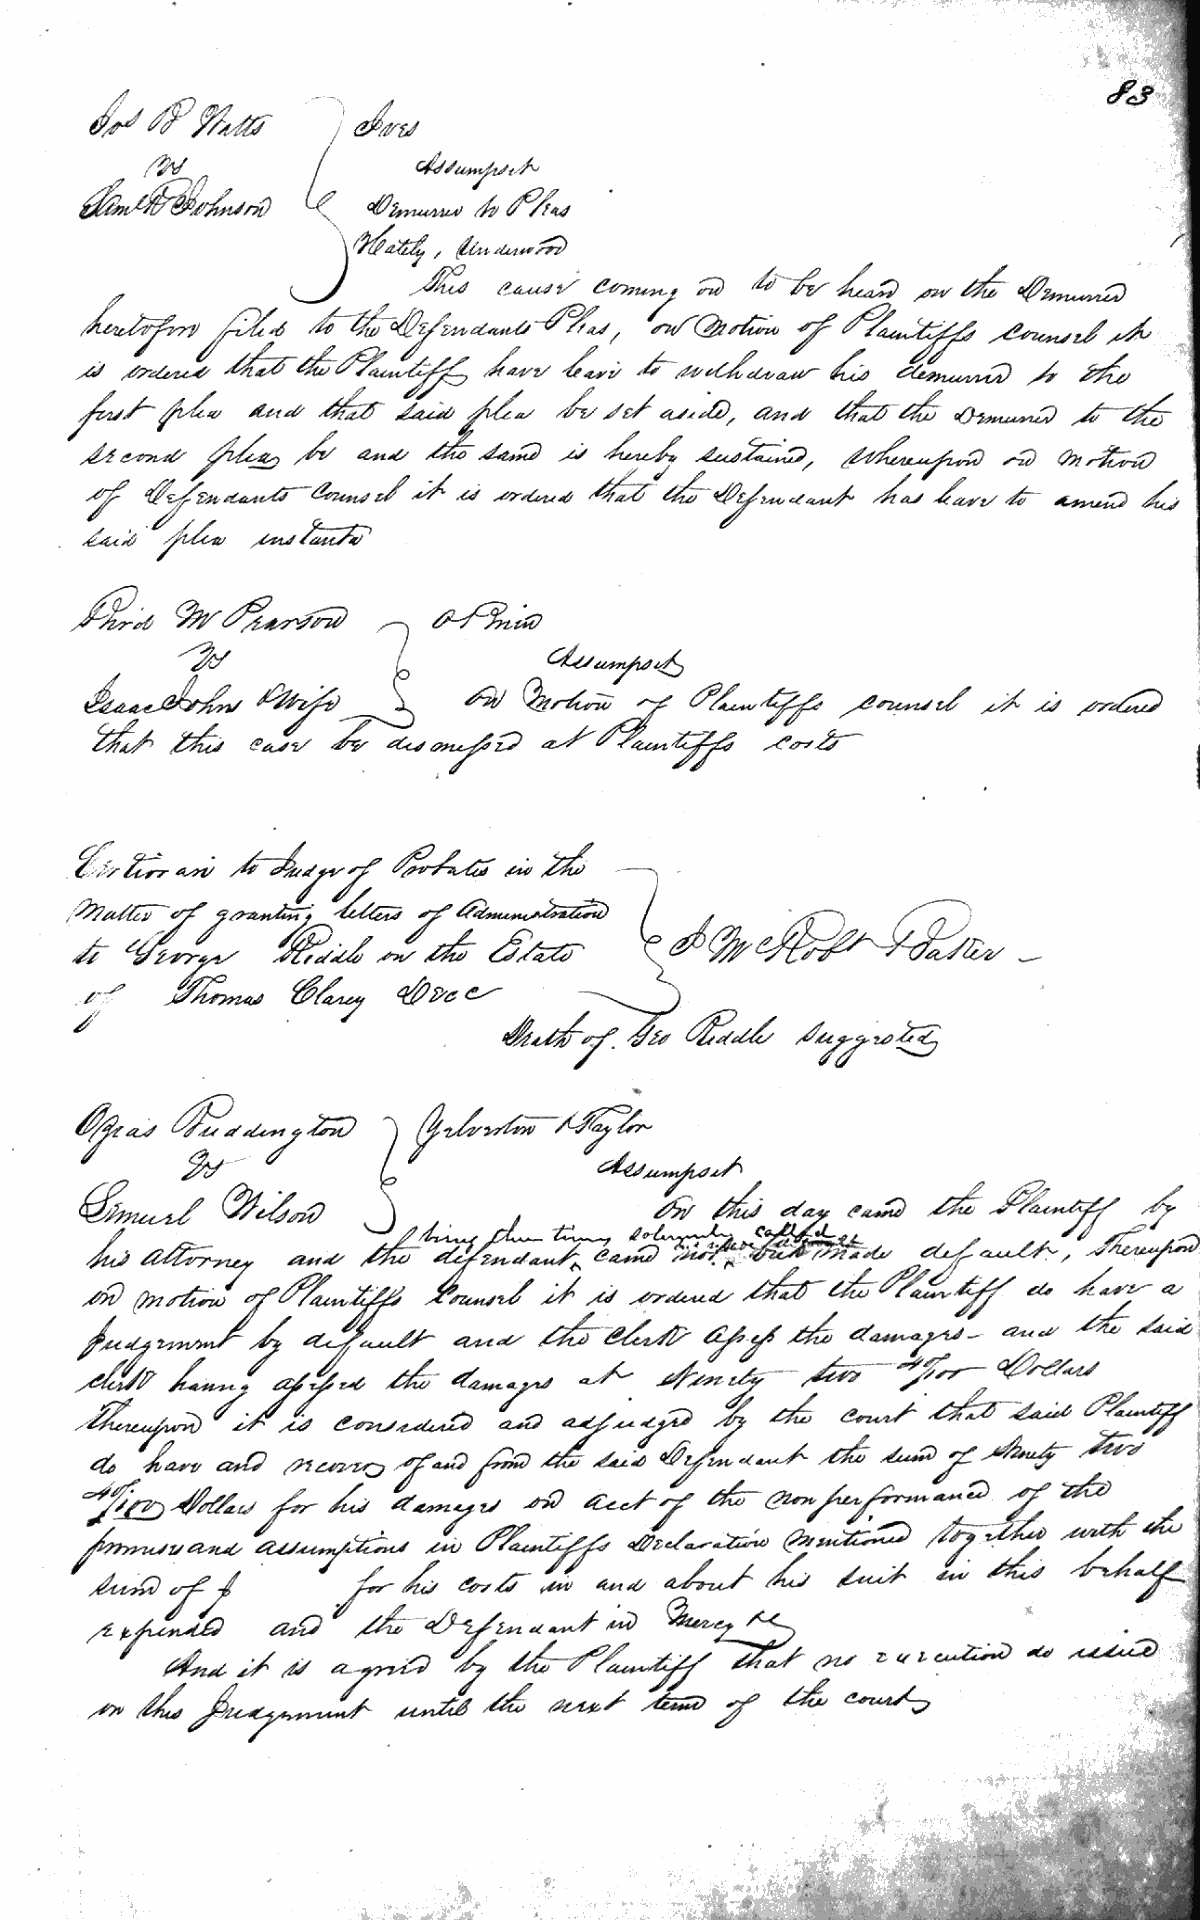 83
Jos B Watts Ives
vs Assumpset
Saml R Johnson Demurrer to Pleas
Hately, Underwood
This cause coming on to be heard on the Demurrer
heretofore filed to the Defendants Pleas, on Motion of Plaintiffs counsel it
is ordered that the Plaintiff have leave to withdraw his demurrer to the
first plea and that said plea be set aside, and that the Demurrer to the
second plea be and the same is hereby sustained, whereupon on motion
of Defendants Counsel it is ordered that the Defendant has leave to amend his
said plea instanta
Third M Pearson
vs Assumpset
Isaac Johns & Wife On Motion of Plaintiffs counsel it is ordered
that this case be dismissed at Plaintiffs costs
Certiorari to Judge of Probates in the
Matter of granting letters of Administration
to George Riddle on the Estate J McRobt & Baker
of Thomas Clarey Decc
Death of Geo Riddle suggested
Ozias Buddington Yelverton & Taylor
vs Assumpset
Lemuel Wilson On this day came the Plaintiff by
being three times solemnly called
his attorney and the defendant, came not but made default, Thereupon
on motion of Plaintiffs Counsel it is ordered that the Plaintiff do have a
Judgement by default and the Clerk assess the damages - and the said
clerk having assessed the damages at Ninety two 40/100 Dollars
Thereupon it is considered and adjudged by the court that said Plaintiff
do have and recover of and from the said Defendant the sum of Ninety two
40/100 Dollars for his damages on acct of the non performance of the
promises and assumptions in Plaintiffs Declaration mentioned together with the
sum of $ for his costs in and about his suit in this behalf
expended and the Defendant in Mercy &c
And it is agreed by the Plaintiff that no execution do issue
on this Judgement until the next term of the court